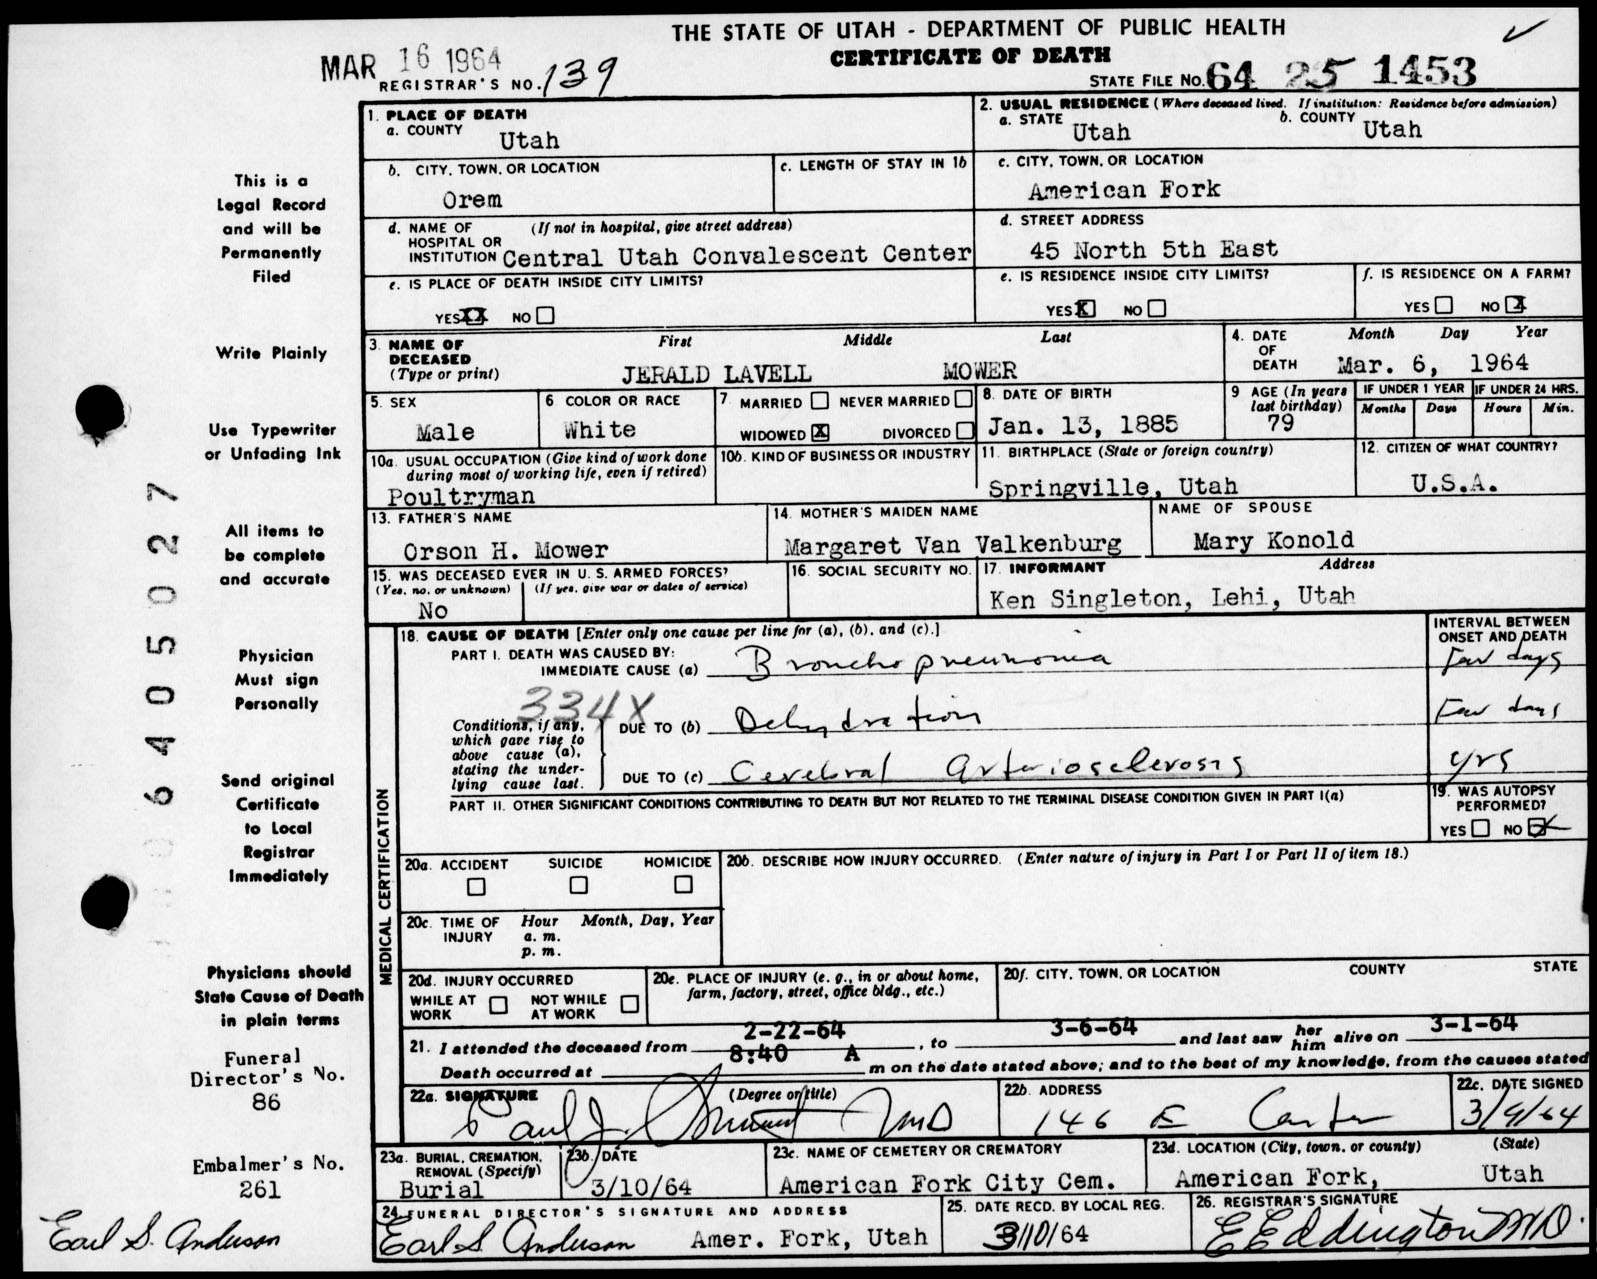 THE STATE OF UTAH - DEPARTMENT OF PUBLIC HEALTH
CERTIFICATE OF DEATH
MAR 16 1964
REGISTRAR'S NO. 139
STATE FILE NO. 64 25 1453
This is a
Legal Record
and will be
Permanently
Filed
Write Plainly
Use Typewriter
or Unfading Ink
All items to
be complete
and accurate
Physician
Must sign
Personally
Send original
Certificate
to Local
Registrar
Immediately
Physicians should
State Cause of Death
in plain terms
Funeral
Director's No.
86
Embalmer's No.
261
Earl S. Anderson
6405027
1. PLACE OF DEATH
a. COUNTY
Utah
2. USUAL RESIDENCE (Where deceased lived. If institution: Residence before admission)
a. STATE Utah b. COUNTY Utah
b. CITY, TOWN, OR LOCATION
Orem
c. LENGTH OF STAY IN 1b
c. CITY, TOWN, OR LOCATION
American Fork
d. NAME OF (If not in hospital, give street address)
HOSPITAL OR
INSTITUTION Central Utah Convalescent Center
d. STREET ADDRESS
45 North 5th East
e. IS PLACE OF DEATH INSIDE CITY LIMITS?
YES XX NO
e. IS RESIDENCE INSIDE CITY LIMITS?
YES X NO
f. IS RESIDENCE ON A FARM?
YES NO X
3. NAME OF First Middle Last
DECEASED
(Type or print) JERALD LAVELL MOWER
4. DATE Month Day Year
OF
DEATH Mar. 6, 1964
5. SEX
Male
6 COLOR OR RACE
White
7. MARRIED NEVER MARRIED
WIDOWED X DIVORCED
8. DATE OF BIRTH
Jan. 13, 1885
9 AGE (In years
last birthday)
79
IF UNDER 1 YEAR IF UNDER 24 HRS.
Months Days Hours Min.
10a. USUAL OCCUPATION (Give kind of work done
during most of working life, even if retired)
Poultryman
10b. KIND OF BUSINESS OR INDUSTRY
11. BIRTHPLACE (State or foreign country)
Springville, Utah
12. CITIZEN OF WHAT COUNTRY?
U.S.A.
13. FATHER'S NAME
Orson H. Mower
14. MOTHER'S MAIDEN NAME
Margaret Van Valkenburg
NAME OF SPOUSE
Mary Konold
15. WAS DECEASED EVER IN U. S. ARMED FORCES?
(Yes, no, or unknown) (If yes, give war or dates of service)
No
16. SOCIAL SECURITY NO.
17. INFORMANT Address
Ken Singleton, Lehi, Utah
MEDICAL CERTIFICATION
18. CAUSE OF DEATH [Enter only one cause per line for (a), (b), and (c).]
INTERVAL BETWEEN
ONSET AND DEATH
PART I. DEATH WAS CAUSED BY:
IMMEDIATE CAUSE (a) Bronchopneumonia Few days
334X
Conditions, if any,
which gave rise to
above cause (a),
stating the under-
lying cause last.
DUE TO (b) Dehydration Few days
DUE TO (c) Cerebral Arteriosclerosis yrs
PART II. OTHER SIGNIFICANT CONDITIONS CONTRIBUTING TO DEATH BUT NOT RELATED TO THE TERMINAL DISEASE CONDITION GIVEN IN PART I(a)
19. WAS AUTOPSY
PERFORMED?
YES NO X
20a. ACCIDENT SUICIDE HOMICIDE
20b. DESCRIBE HOW INJURY OCCURRED. (Enter nature of injury in Part I or Part II of item 18.)
20c. TIME OF Hour Month, Day, Year
INJURY a. m.
p. m.
20d. INJURY OCCURRED
WHILE AT NOT WHILE
WORK AT WORK
20e. PLACE OF INJURY (e. g., in or about home,
farm, factory, street, office bldg., etc.)
20f. CITY, TOWN, OR LOCATION COUNTY STATE
21. I attended the deceased from 2-22-64, to 3-6-64 and last saw her him alive on 3-1-64
Death occurred at 8:40 A m on the date stated above; and to the best of my knowledge, from the causes stated
22a. SIGNATURE (Degree or title)
Paul J. MD
22b. ADDRESS
146 E Center
22c. DATE SIGNED
3/9/64
23a. BURIAL, CREMATION,
REMOVAL (Specify)
Burial
23b. DATE
3/10/64
23c. NAME OF CEMETERY OR CREMATORY
American Fork City Cem.
23d. LOCATION (City, town, or county) (State)
American Fork, Utah
24 FUNERAL DIRECTOR'S SIGNATURE AND ADDRESS
Earl S Anderson Amer. Fork, Utah
25. DATE RECD. BY LOCAL REG.
3/10/64
26. REGISTRAR'S SIGNATURE
E E Eddington MD.